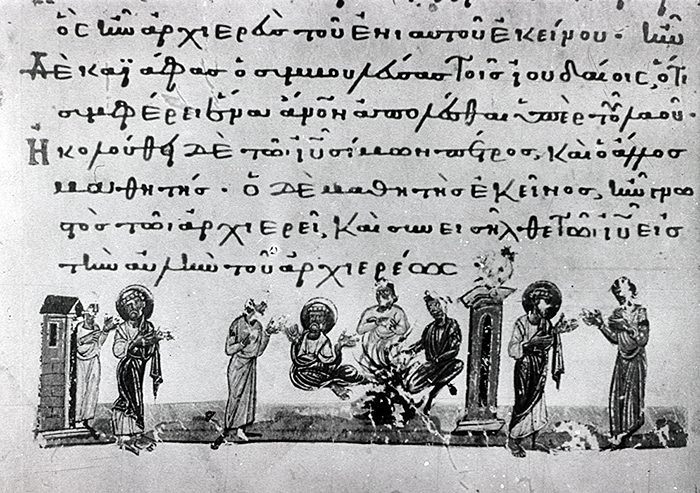 ὃς ἦν ἀρχιερεὺς τοῦ ἐνιαυτοῦ ἐκείνου· ἦν
δὲ καϊάφας ὁ συμβουλεύσας τοῖς ἰουδαίοις, ὅτι
συμφέρει ἕνα ἄνον ἀπολέσθαι ὑπὲρ τοῦ λαοῦ·
Ἠκολούθει δὲ τῶι ἰῦ σίμων πέτρος, καὶ ὁ ἄλλος
μαθητής· ὁ δὲ μαθητὴς ἐκεῖνος, ἦν γνω
στὸς τῶι ἀρχιερεῖ, καὶ συνεισῆλθε τῶι ἰῦ εἰς
τὴν αὐλὴν τοῦ ἀρχιερέως·